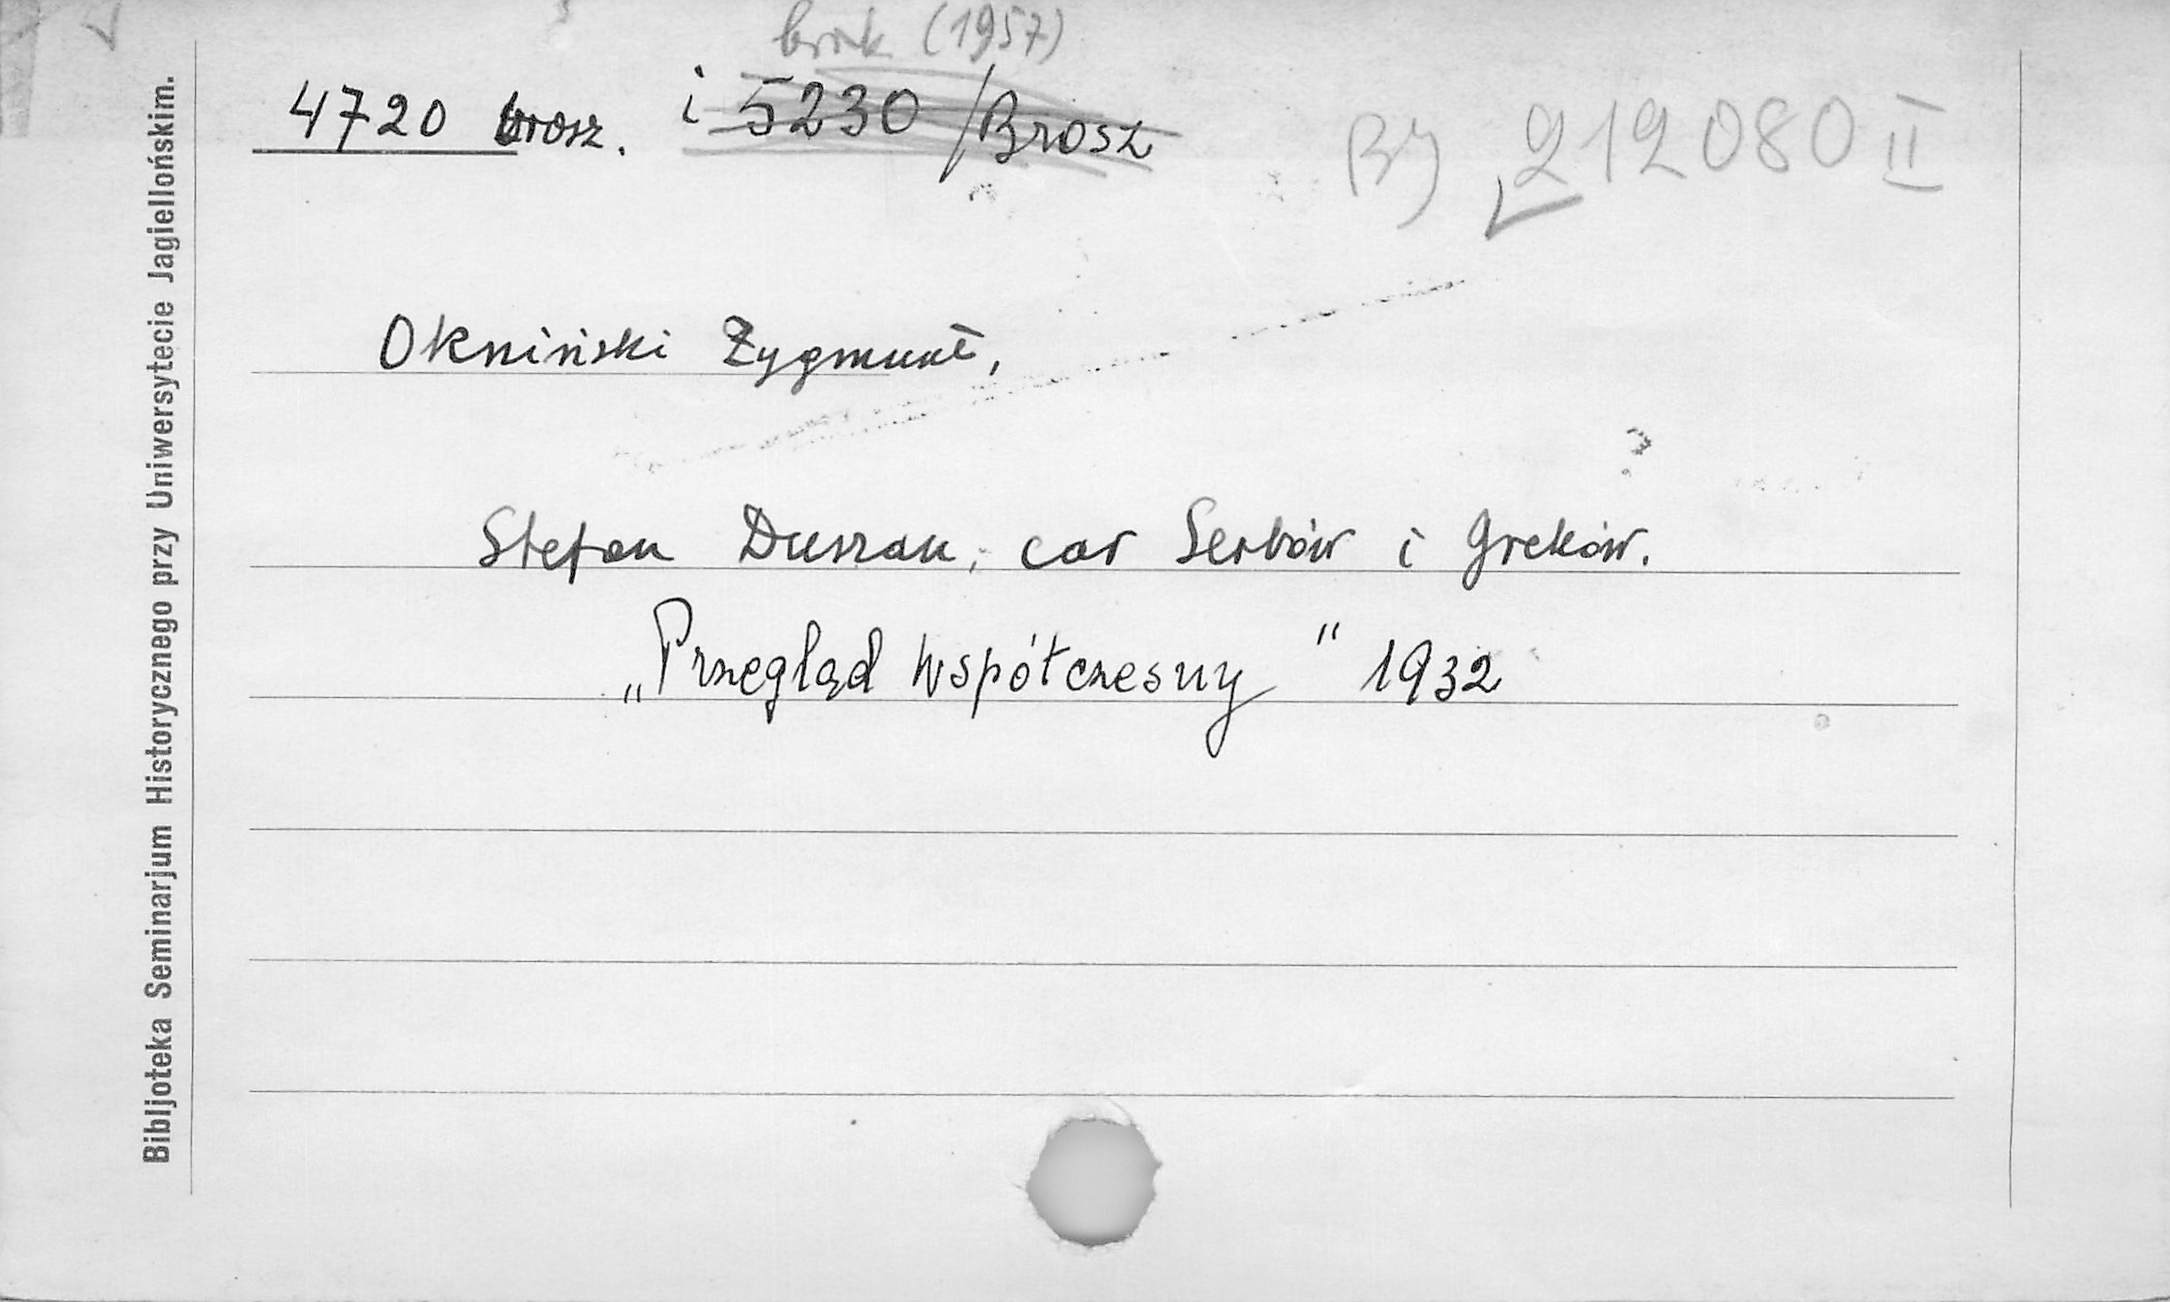 brak (1957)
4720 brosz. i 5230/Brosz BJ 212080 II
Okniński Zygmunt,
Stefan Duszan, car Serbów i Greków.
„Przegląd Współczesny" 1932
Bibljoteka Seminarjum Historycznego przy Uniwersytecie Jagiellońskim.